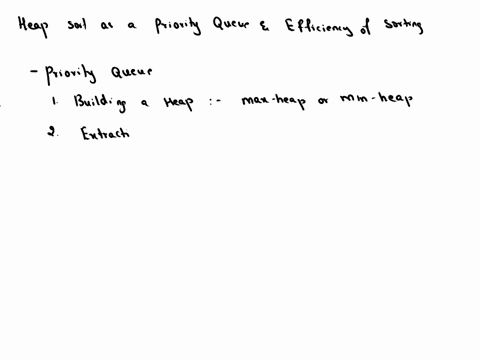 Heap sort as a Priority Queue & Efficiency of sorting
- Priority Queue
1. Building a Heap :- max-heap or min-heap
2. Extract